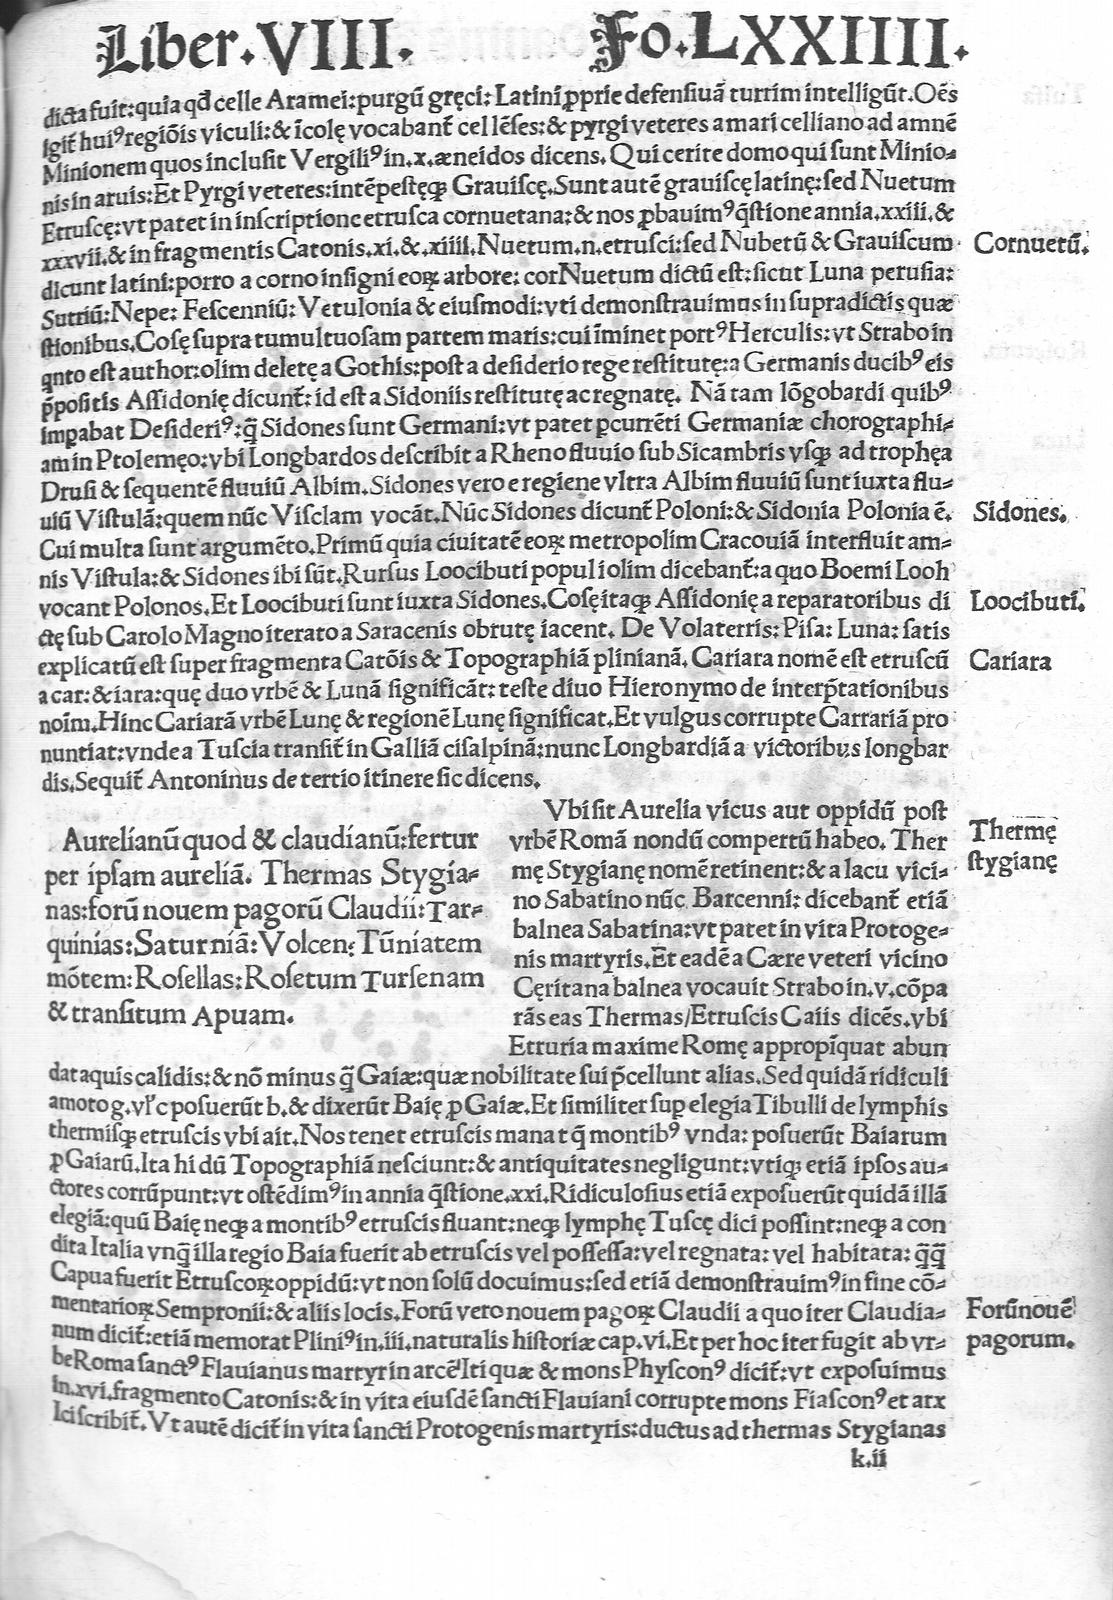 Liber.VIII. Fo.LXXIIII.
dicta fuit: quia qđ celle Aramei: purgū gręci: Latini ꝓprie defensiuā turrim intelligūt. Oēs
igit᷑ huiꝰ regiōis viculi: & īcolę vocabant᷑ cellēses: & pyrgi veteres a mari celliano ad amnē
Minionem quos inclusit Vergiliꝰ in .x. æneidos dicens. Qui cerite domo qui sunt Minio⸗
nis in aruis: Et Pyrgi veteres: intēpestęqꝫ Grauiscę. Sunt autē grauiscę latinę: sed Nuetum
Etruscę: vt patet in inscriptione etrusca cornuetana: & nos ꝓbauimꝰ q̄stione annia .xxiii. &
xxxvii. & in fragmentis Catonis .xi. & .xiiii. Nuetum .n. etrusci: sed Nubetū & Grauiscum
Cornuetū.
dicunt latini: porro a corno insigni eoꝝ arbore: corNuetum dictū est: sicut Luna perusia:
Sutriū: Nepe: Fescenniū: Vetulonia & eiusmodi: vti demonstrauimus in supradictis quæ
stionibus. Cosę supra tumultuosam partem maris: cui īminet portꝰ Herculis: vt Strabo in
qnto est author: olim deletę a Gothis: post a desiderio rege restitutę: a Germanis ducibꝰ eis
p̄positis Assidonię dicunt᷑: id est a Sidoniis restitutę ac regnatę. Nā tam lōgobardi quibꝰ
impabat Desideriꝰ: q̄ Sidones sunt Germani: vt patet ꝑcurrēti Germaniæ chorographi⸗
am in Ptolemęo: vbi Longbardos describit a Rheno fluuio sub Sicambris vsqꝫ ad trophęa
Drusi & sequentē fluuiū Albim. Sidones vero e regiene vltra Albim fluuiū sunt iuxta flu⸗
uiū Vistulā: quem nūc Visclam vocāt. Nūc Sidones dicunt᷑ Poloni: & Sidonia Polonia ē.
Sidones.
Cui multa sunt argumēto. Primū quia ciuitatē eoꝝ metropolim Cracouiā interfluit am⸗
nis Vistula: & Sidones ibi sūt. Rursus Loocibuti populi olim dicebant᷑: a quo Boemi Looh
vocant Polonos. Et Loocibuti sunt iuxta Sidones. Cosę itaqꝫ Assidonię a reparatoribus di
Loocibuti.
ctę sub Carolo Magno iterato a Saracenis obrutę iacent. De Volaterris: Pisa: Luna: satis
explicatū est super fragmenta Catōis & Topographiā plinianā. Cariara nomē est etruscū
Cariara
a car: & iara: quę duo vrbē & Lunā significāt: teste diuo Hieronymo de interp̄tationibus
noīm. Hinc Cariarā vrbē Lunę & regionē Lunę significat. Et vulgus corrupte Carrariā pro
nuntiat: vnde a Tuscia transit᷑ in Galliā cisalpinā: nunc Longbardiā a victoribus longbar
dis. Sequit᷑ Antoninus de tertio itinere sic dicens.
Aurelianū quod & claudianū: fertur
per ipsam aureliā. Thermas Stygia⸗
nas: forū nouem pagorū Claudii: Tar⸗
quinias: Saturniā: Volcen: Tūniatem
mōtem: Rosellas: Rosetum Tursenam
& transitum Apuam.
Vbi sit Aurelia vicus aut oppidū post
vrbē Romā nondū compertū habeo. Ther
Thermę
mę Stygianę nomē retinent: & a lacu vici⸗
stygianę
no Sabatino nūc Barcenni: dicebant᷑ etiā
balnea Sabatina: vt patet in vita Protoge⸗
nis martyris. Et eadē a Cære veteri vicino
Cęritana balnea vocauit Strabo in .v. cōpa
rās eas Thermas/Etruscis Caiis dicēs. vbi
Etruria maxime Romę appropīquat abun
dat aquis calidis: & nō minus q̄ Gaiæ: quæ nobilitate sui p̄cellunt alias. Sed quidā ridiculi
amoto g. vl'c posuerūt b. & dixerūt Baię ꝓ Gaiæ. Et similiter sup elegia Tibulli de lymphis
thermisqꝫ etruscis vbi ait. Nos tenet etruscis manat q̄ montibꝰ vnda: posuerūt Baiarum
ꝓ Gaiarū. Ita hi dū Topographiā nesciunt: & antiquitates negligunt: vtiqꝫ etiā ipsos au⸗
ctores corrūpunt: vt ostēdimꝰ in annia q̄stione .xxi. Ridiculosius etiā exposuerūt quidā illā
elegiā: quū Baię neqꝫ a montibꝰ etruscis fluant: neqꝫ lymphę Tuscę dici possint: neqꝫ a con
dita Italia vnq̄ illa regio Baia fuerit ab etruscis vel possessa: vel regnata: vel habitata: q̄q̄
Capua fuerit Etruscoꝝ oppidū: vt non solū docuimus: sed etiā demonstrauimꝰ in fine cō⸗
mentarioꝝ Sempronii: & aliis locis. Forū vero nouem pagoꝝ Claudii a quo iter Claudia⸗
Forūnouē
num dicit᷑: etiā memorat Pliniꝰ in .iii. naturalis historiæ cap. vi. Et per hoc iter fugit ab vr⸗
pagorum.
be Roma sanctꝰ Flauianus martyr in arcē Iti quæ & mons Physconꝰ dicit᷑: vt exposuimus
in .xvi. fragmento Catonis: & in vita eiusdē sancti Flauiani corrupte mons Fiasconꝰ et arx
Ici scribit᷑. Vt autē dicit᷑ in vita sancti Protogenis martyris: ductus ad thermas Stygianas
k.ii